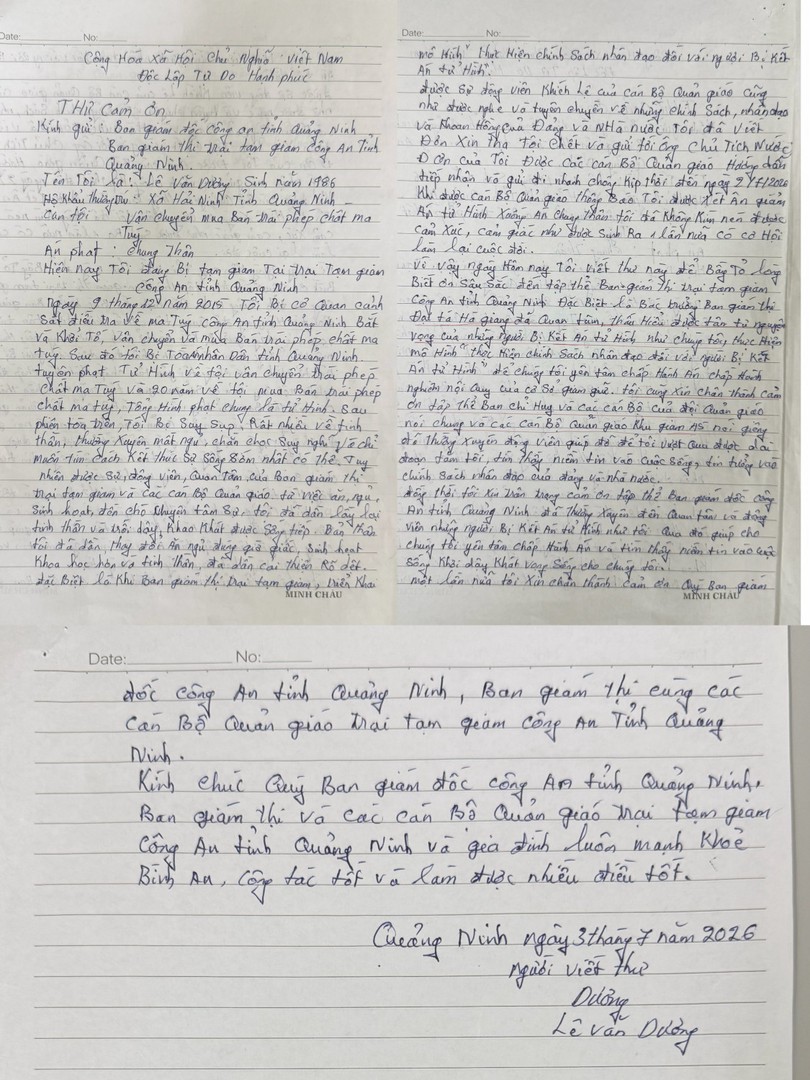 Date: No:
Cộng Hòa Xã Hội Chủ Nghĩa Việt Nam
Độc Lập Tự Do Hạnh phúc
THƯ CẢM ƠN
Kính gửi: Ban giám đốc công an tỉnh Quảng Ninh
Ban giám thị Trại tạm giam Công An Tỉnh
Quảng Ninh.
Tên Tôi Là: Lê Văn Dương Sinh năm 1986
Hộ khẩu Thường Trú: Xã Hải Ninh Tỉnh Quảng Ninh
Can tội Vận chuyển mua Bán Trái phép chất ma
Túy
Án phạt: chung Thân
Hiện nay Tôi đang Bị tạm giam Tại Trại Tạm giam
Công An tỉnh Quảng Ninh
Ngày 9 tháng 12 năm 2015 Tôi Bị cơ Quan cảnh
Sát điều tra về ma Túy công An tỉnh Quảng Ninh Bắt
và Khởi Tố, vận chuyển và mua Bán trái phép chất ma
túy. Sau đó tôi Bị Toà Nhân Dân tỉnh Quảng Ninh.
tuyên phạt Tử Hình về tội vận chuyển Trái phép
chất ma Túy và 20 năm về tội mua Bán Trái phép
chất ma túy, Tổng Hình phạt chung là tử Hình. Sau
phiên toà trên, Tôi Bị Suy Sụp Rất nhiều về tinh
thần, thường Xuyên mất ngủ, chán chọc Suy nghĩ về chỉ
muốn Tìm cách Kết thúc Sự Sống Sớm nhất có thể, Tuy
nhiên được Sự động viên, Quan Tâm của Ban giám thị
Trại tạm giam và các cán Bộ Quản giáo từ việc ăn, ngủ,
Sinh hoạt, đến chỗ chuyện tâm Sự, tôi đã dần lấy lại
tinh thần và trỗi dậy, Khao Khát được Sống tiếp. Bản thân
tôi đã dần thay đổi Ăn ngủ đúng giờ giấc, Sinh hoạt
Khoa học hơn và tinh Thần, đã dần cải thiện Rõ dệt.
đặc Biệt là Khi Ban giám Thị Trại tạm giam, triển Khai
MINH CHÂU
Date: No:
mô Hình "thực Hiện chính Sách nhân đạo đối với người Bị Kết
Án tử Hình".
được Sự động viên Khích Lệ của cán Bộ Quản giáo cũng
như được nghe và tuyên chuyền về những chính Sách, nhân đạo
và Khoan Hồng của Đảng và Nhà nước Tôi đã Viết
Đơn Xin Tha Tội Chết và gửi tới Ông Chủ Tịch Nước
Đơn của Tôi Được các cán Bộ Quản giáo Hướng dẫn
tiếp nhận và gửi đi nhanh chóng Kịp thời đến ngày 2/7/2026
Khi được cán Bộ Quản giáo thông Báo Tôi được Xét Ân giảm
Án tử Hình Xuống Án chung Thân tôi đã Không Kìm nén được
cảm Xúc, cảm giác như được Sinh Ra 1 lần nữa có cơ Hội
làm lại cuộc đời.
Vì vậy ngày Hôm nay Tôi viết thư này để Bày Tỏ lòng
Biết ơn Sâu Sắc đến tập thể Ban giám Thị Trại tạm giam
Công An tỉnh Quảng Ninh Đặc Biệt là Bác trưởng Ban giám thị
Đại tá Hà giang đã Quan tâm, thấu Hiểu được tâm tư nguyện
vọng của những người Bị Kết Án tử Hình như chúng tôi, thực Hiện
mô Hình "thực Hiện chính Sách nhân đạo đối với người Bị Kết
Án tử Hình" để chúng tôi yên tâm chấp Hành Án chấp Hành
nghiêm nội Quy của cơ Sở giam giữ. tôi cũng Xin chân thành cảm
ơn tập thể Ban chỉ Huy và các cán Bộ của đội Quản giáo
nói chung và các Cán Bộ Quản giáo Khu giam A5 nói giêng
đã Thường Xuyên động Viên giúp đỡ để tôi Vượt Qua được giai
đoạn tăm tối, tìm thấy niềm tin vào Cuộc Sống, tin tưởng vào
chính Sách nhân đạo của đảng và nhà nước.
đồng thời tôi Xin Trân Trọng cảm ơn tập thể Ban giám đốc Công
An tỉnh Quảng Ninh đã Thường Xuyên đến Quan tâm và động
Viên những người Bị Kết Án tử Hình như tôi Qua đó giúp cho
chúng tôi yên tâm chấp Hành Án và tìm thấy niềm tin vào cuộc
Sống Khơi dậy Khát Vọng Sống cho chúng tôi.
một lần nữa tôi Xin chân thành cảm ơn Quý Ban giám
MINH CHÂU
Date: No:
đốc công An tỉnh Quảng Ninh, Ban giám thị cùng các
cán Bộ Quản giáo trại tạm giam công An Tỉnh Quảng
Ninh.
Kính chúc Quý Ban giám đốc công An tỉnh Quảng Ninh.
Ban giám thị và các cán Bộ Quản giáo trại tạm giam
Công An tỉnh Quảng Ninh và gia đình luôn mạnh Khoẻ
Bình An, công tác tốt và làm được nhiều điều tốt.
Quảng Ninh ngày 3 tháng 7 năm 2026
người viết thư
Dương
Lê Văn Dương